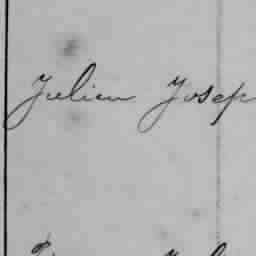 Julien Josep